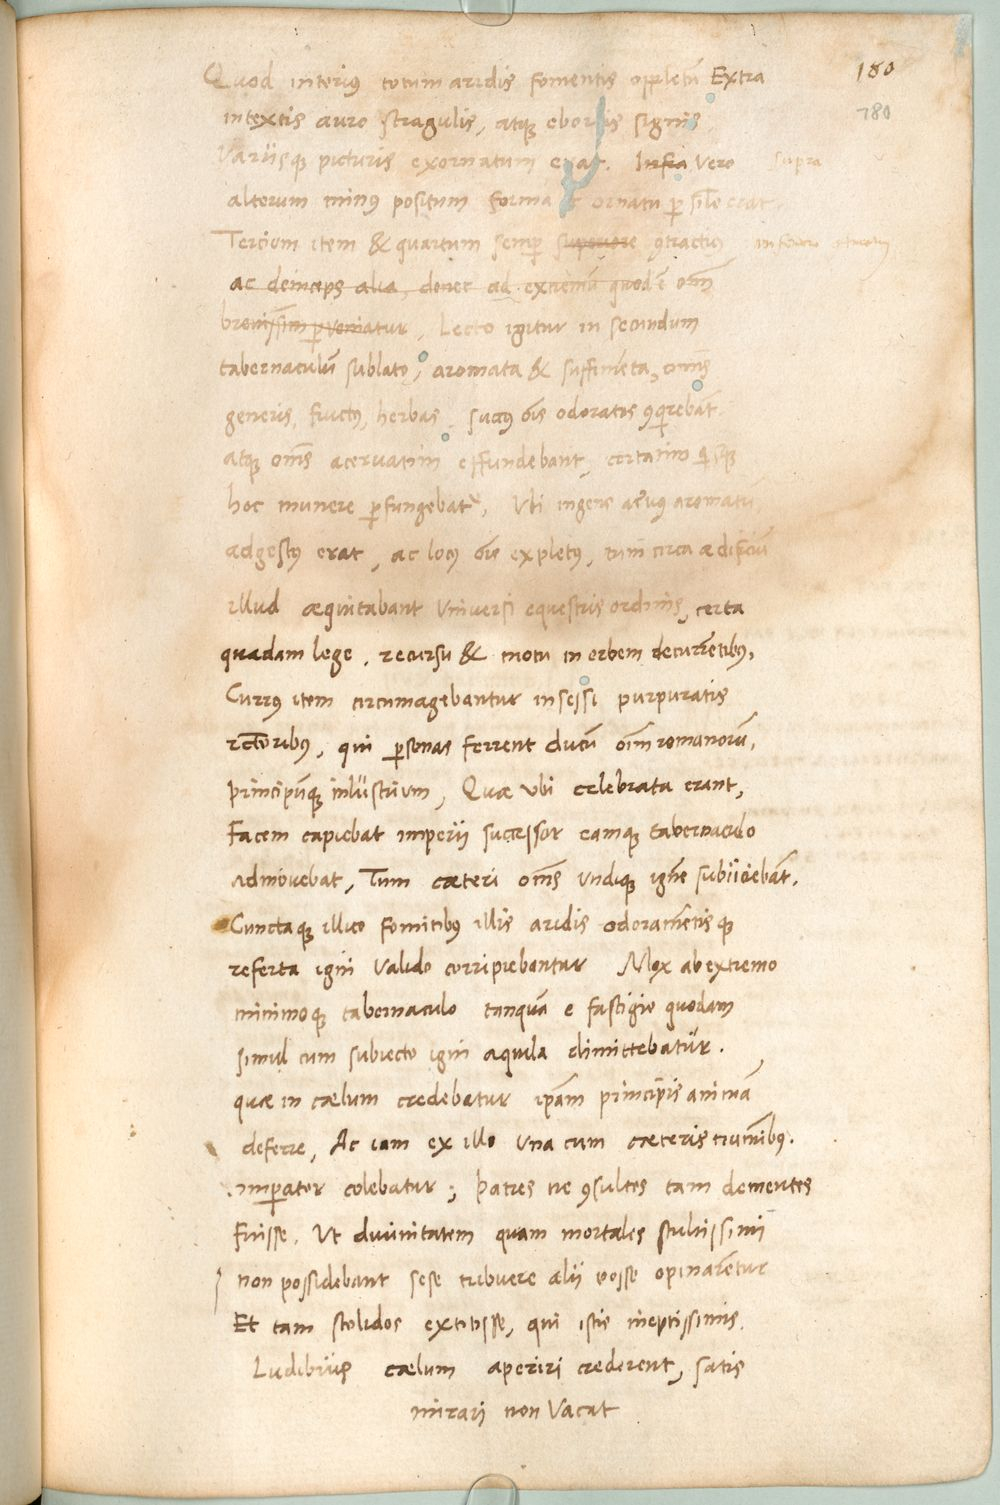 180
780
Quod interius totum aridis fomentis oppletū Extra
intextis auro stragulis, atq; eboreis signis
Variisq; picturis exornatum erat. Infra vero supra
alterum minus positum forma & ornatu ꝑ sile erat.
Tercium item & quartum semp superiore ꝯtractius
ac deinceps alia, donec ad extremū quod ē om̄
brevissim perveniatur. Lecto igitur in secundum
tabernaculū sublato, aromata & suffimēta, om̄s
generis, fructus, herbas, succus om̄s odoratos ꝯqrebāt
atq; om̄s acervatim effundebant, certatim quisq;
hoc munere ꝑfungebat, Vbi ingens acervus aromatū
adgestus erat, ac locus om̄s expletus, tum circa ædificiū
illud æquitabant universi equestris ordinis, certa
quadam lege, recursu & motu in orbem decurrētibus,
Currus item circumagebantur insessi purpuratis
rectoribus, qui ꝑsonas ferrent ducū om̄m romanorū,
principūq; inlustrium, Quæ ubi celebrata erant,
Facem capiebat imperii successor eamq; tabernaculo
admovebat, Tum cæteri om̄s undiq; igne subiiciebāt.
Cunctaq; illico fomitibus illis aridis odoramētisq;
referta igni valido corripiebantur Mox ab extremo
minimoq; tabernaculo tanquā e fastigio quodam
simul cum subiecto igni aquila dimittebatur.
quæ in cælum credebatur ip̄am principis animā
deferre, Ac iam ex illo una cum cæteris numībus.
imꝑator colebatur; Patres ne ꝯsultos tam dementes
fuisse, Ut divinitatem quam mortales stultissimi
non possidebant sese tribuere alii posse opinarētur
Et tam stolidos extitisse, qui istis ineptissimis
Ludibriis cælum aperiri crederent, satis
mirari non vacat